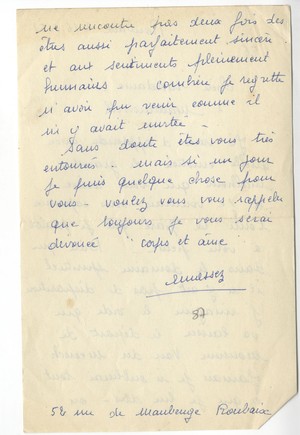 ne rencontre pas deux fois des
êtres aussi parfaitement sincère
et aux sentiments pleinement
humains combien je regrette
n'avoir pu venir comme il
m'y avait invitée -
Sans doute êtes vous très
entourés - mais si un jour
je puis quelque chose pour
vous - voulez vous vous rappeler
que toujours je vous serai
dévouée "corps et âme
87
52 rue de Maubeuge Roubaix